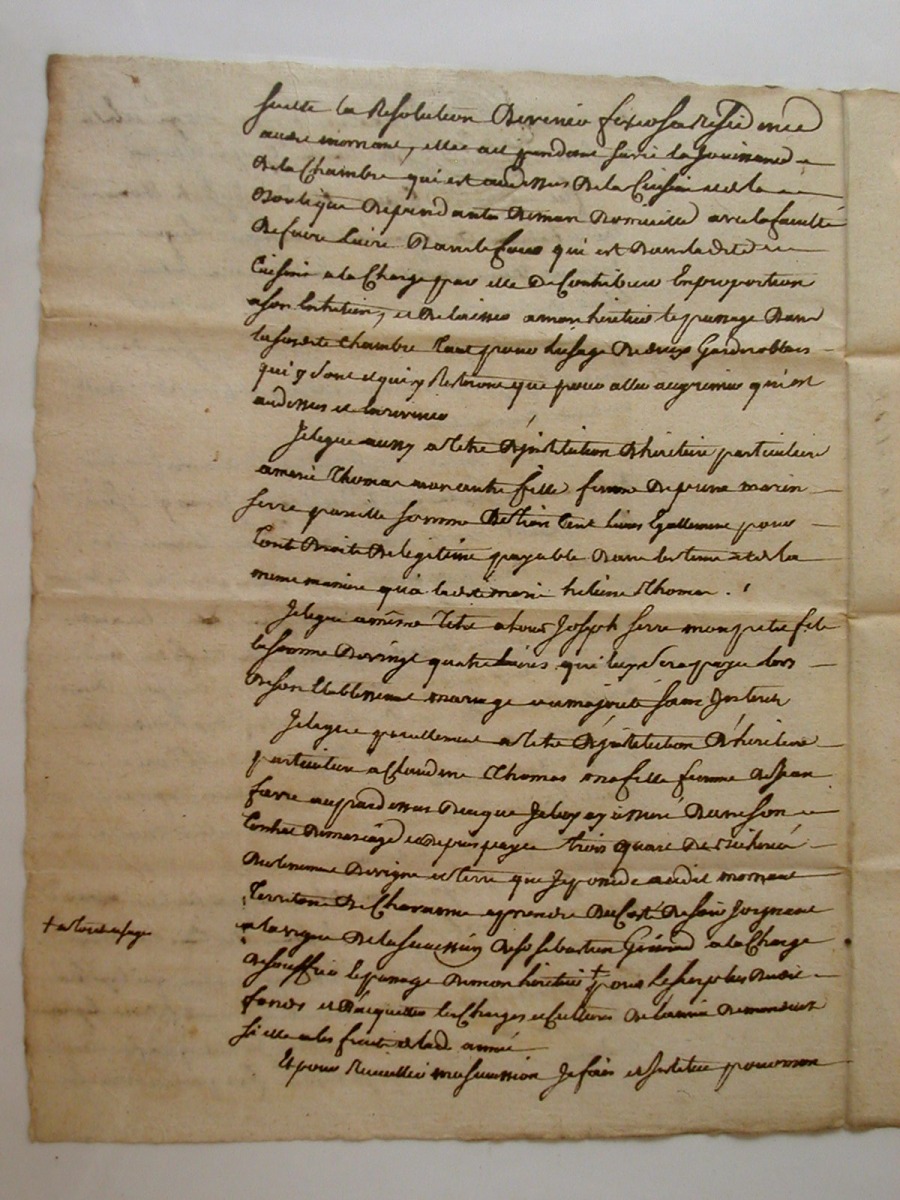 suitte la Resolution De venir fixer sa Residence
audit mornant, elle ait pendant sa vie la Jouissance
De la Chambre qui est au dessus De la Cuisine et de la
Boutique Dependante De mon Domicille avec la faculté
De faire Cuire Dans le four qui est Dans ladite
Cuisine a la Charge par elle De Contribuer En proportion
a son Entretien, et De laisser a mon heritier le passage Dans
la susdite Chambre tant pour L'usage De deux Garderobbes
qui y sont et qui y Resteront que pour aller au grenier qui est
au dessus et En revenir
Je legue aussy a titre D'institution D'heritiere particuliere
a marie Thomas mon autre fille femme De pierre marin
ferre pareille somme De Cent livres Egallement pour
tout Droits De legitime payable Dans les tems et de la
meme maniere qu'a ladite marie helaine Thomas .
Je legue a même titre a Joseph ferre mon petit fils
la somme De vingt quatre Livres qui luy sera payée lors
De son Etablissement mariage ou majorité sans Interets
Je legue pareillement a titre D'institution D'heritiere
particuliere a Claudine Thomas ma fille femme De Jean
favre au par dessus De ce que Je luy ay assuré Dans son
Contrat De mariage et Depuis payé trois quart De
De vigne et terre que Je possede audit mornant
Territoire De a prendre Du Coté De soir Joignant
a la vigne De la succession De Sebastien a la Charge
De souffrir le passage De mon heritier † pour
fonds et D'acquitter les Charges et Cultures De l'année De mon decet
si elle a les fruits de lad. année
Et pour Recueillir ma succession Je fais et Institue pour mon
† a tout usage